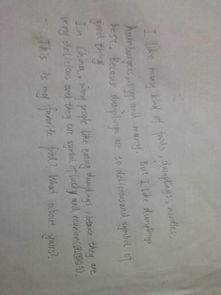 I like many kind of foods, dumplings, noodles,
hamburgers, eggs and many. But I like dumplings
best. Because dumplings are so delicious and symbol of
good thing.
In China, many people like eating dumplings, because they are
very delicious and they are symbol of lucky and reunion
This is my favorite food? What about yours?